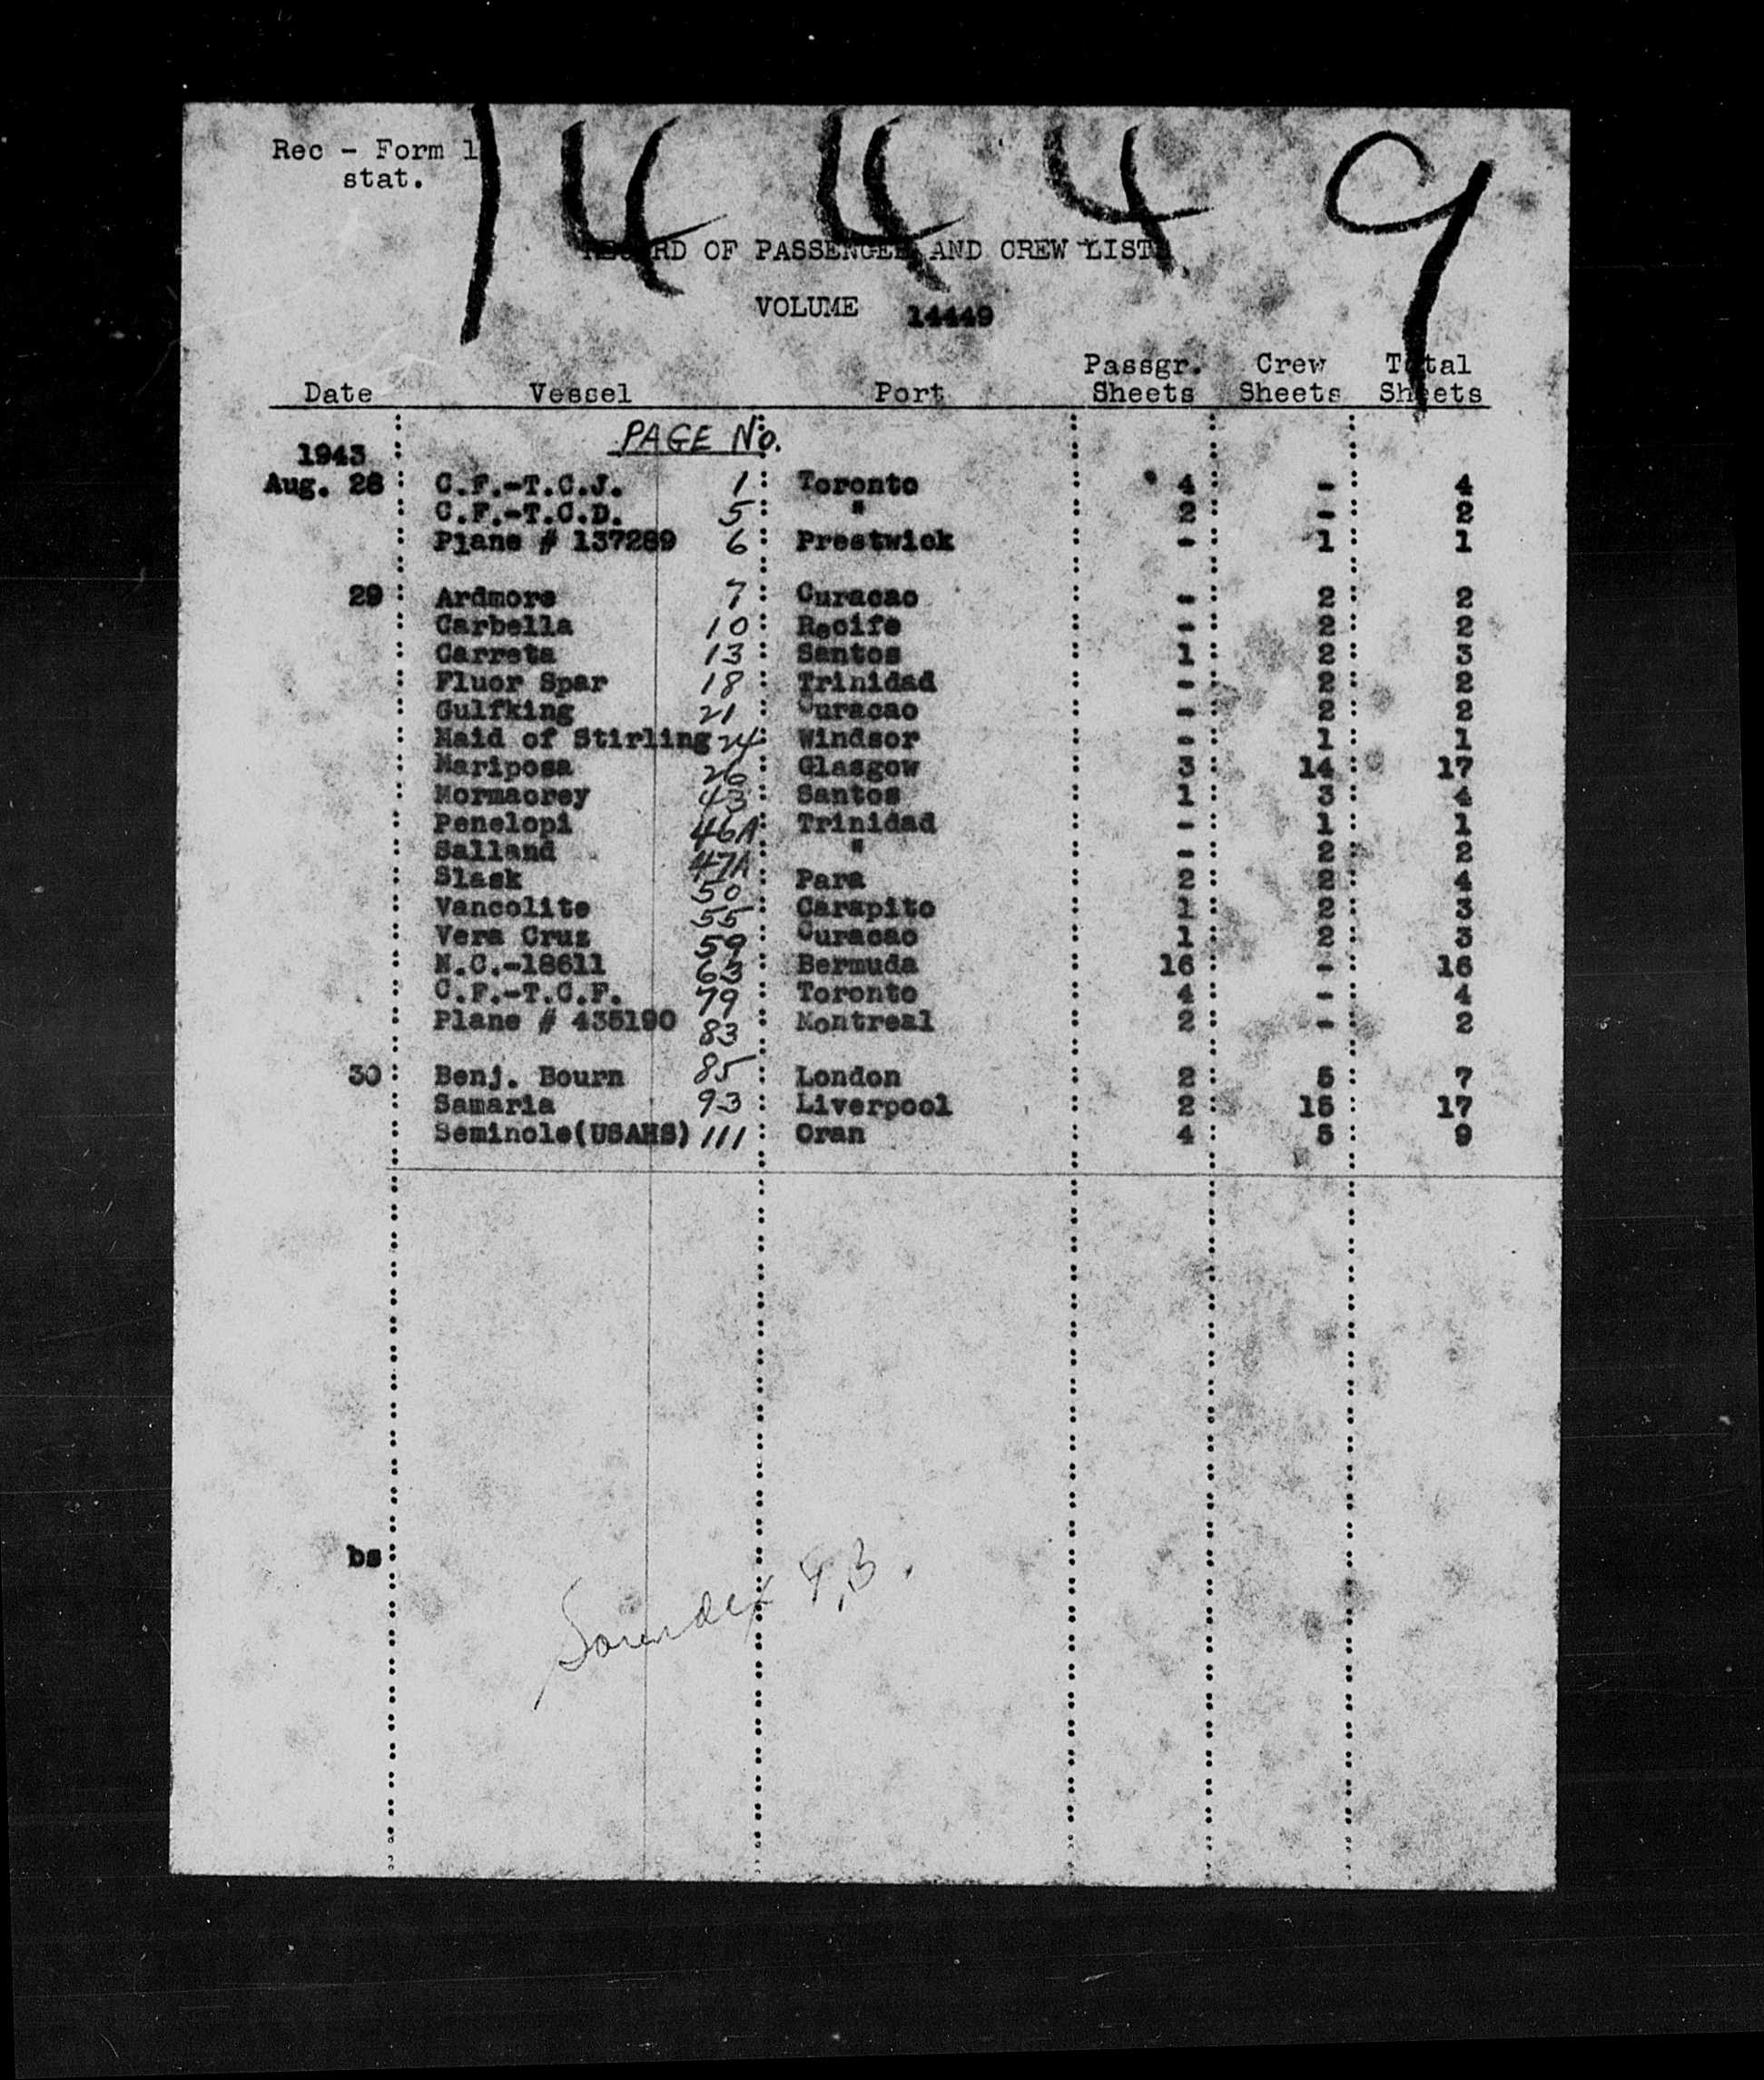 14449
Rec - Form 1
stat.
RECORD OF PASSENGER AND CREW LIST
VOLUME 14449
Date Vessel Port Passgr. Sheets Crew Sheets Total Sheets
PAGE No.
1943
Aug. 28 C.F.-T.C.J. 1 Toronto 4 - 4
C.F.-T.C.D. 5 " 2 - 2
Plane # 137289 6 Prestwick - 1 1
29 Ardmore 7 Curacao - 2 2
Carbella 10 Recife - 2 2
Carreta 13 Santos 1 2 3
Fluor Spar 18 Trinidad - 2 2
Gulfking 21 Curacao - 2 2
Maid of Stirling 24 Windsor - 1 1
Mariposa 26 Glasgow 3 14 17
Mormacrey 43 Santos 1 3 4
Penelopi 46A Trinidad - 1 1
Salland 47A " - 2 2
Slask 50 Para 2 2 4
Vancolite 55 Carapito 1 2 3
Vera Cruz 59 Curacao 1 2 3
N.C.-18611 63 Bermuda 16 - 16
C.F.-T.C.F. 79 Toronto 4 - 4
Plane # 435190 83 Montreal 2 - 2
30 Benj. Bourn 85 London 2 5 7
Samaria 93 Liverpool 2 15 17
Seminole(USAHS) 111 Oran 4 5 9
bs
Soundex